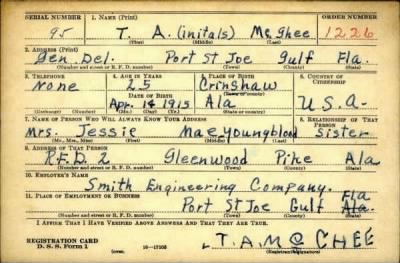 SERIAL NUMBER 1. NAME (Print) ORDER NUMBER
95 T. A. (initals) McGhee 1226
(First) (Middle) (Last)
2. ADDRESS (Print)
Gen. Del. Port St Joe Gulf Fla.
(Number and street or R. F. D. number) (Town) (County) (State)
3. TELEPHONE 4. AGE IN YEARS 5. PLACE OF BIRTH 6. COUNTRY OF CITIZENSHIP
None 25 Crinshaw
DATE OF BIRTH (Town or county)
Apr. 14 1915 Ala U.S.A.
(Exchange) (Number) (Mo.) (Day) (Yr.) (State or country)
7. NAME OF PERSON WHO WILL ALWAYS KNOW YOUR ADDRESS 8. RELATIONSHIP OF THAT PERSON
Mrs. Jessie Mae youngblood Sister
(Mr., Mrs., Miss) (First) (Middle) (Last)
9. ADDRESS OF THAT PERSON
R.F.D. 2 Gleenwood Pike Ala
(Number and street or R. F. D. number) (Town) (County) (State)
10. EMPLOYER'S NAME
Smith Engineering Company.
11. PLACE OF EMPLOYMENT OR BUSINESS Fla
Port St Joe Gulf Ala.
(Number and street or R. F. D. number) (Town) (County) (State)
I AFFIRM THAT I HAVE VERIFIED ABOVE ANSWERS AND THAT THEY ARE TRUE.
REGISTRATION CARD
D. S. S. Form 1 (over) 16—17105 T.A.MC GHEE
(Registrant's signature)